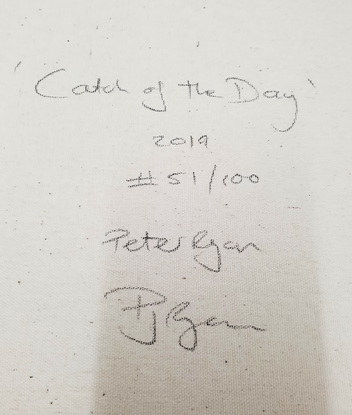 'Catch of the Day'
2019
#51/100
Peter Ryan
PJ Ryan